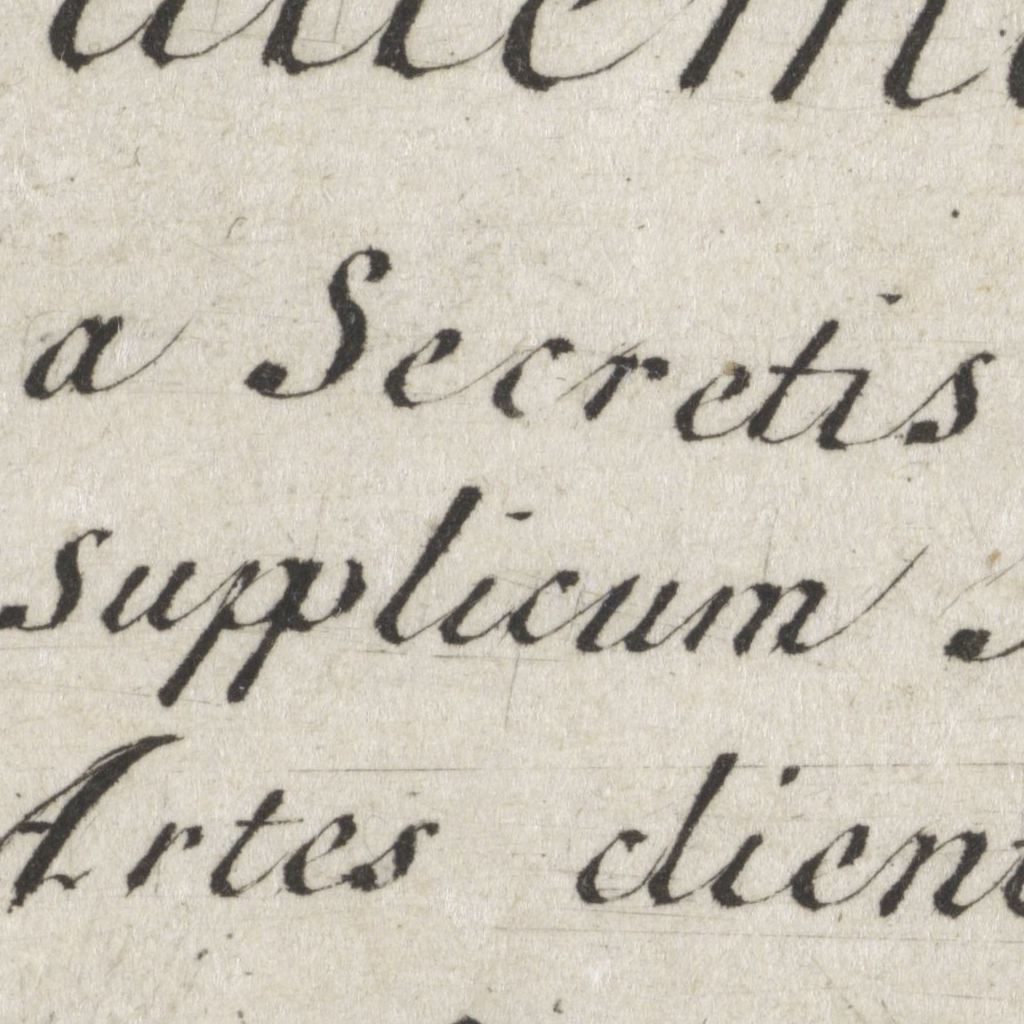 a Secretis
supplicum
Artes dient